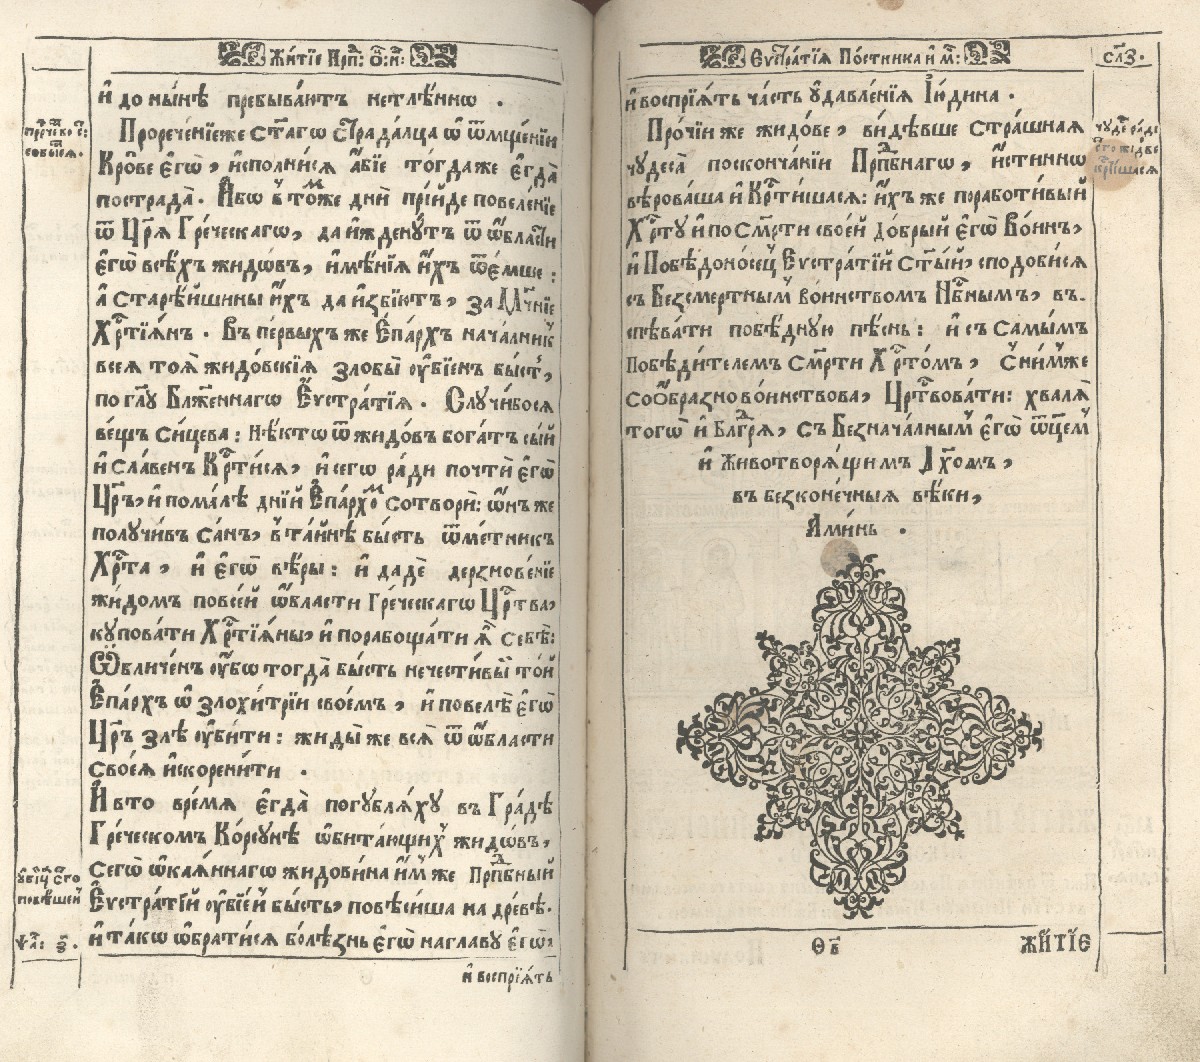 Житїе Прп҃: ѻ҃: и҃:
и҆ до ны́нѣ пребыва́ютъ нетлѣ́ннѡ .
Прⷪ҇рчⷭ҇кое: събы́сѧ.
Прорече́нїеже Ст҃а́гѡ Стрⷭ҇ада́лца ѡ҆ ѿмще́нїи
Кро́ве є҆гѡ̀, и҆спо́лнисѧ а҆́бїе тогда́же є҆гда̀
пострада̀. И҆́бѡ в̾ то́мже днѝ прїи́де повелѣ́нїе
ѿ Цр҃ѧ̀ Гре́ческагѡ, да и҆жденꙋ́тъ ѿ ѡ҆́бласти
є҆гѡ̀ всѣ́хъ жидѡ́въ, и҆мѣ́нїѧ и҆́хъ ѿе́мше :
а҆ Старѣ́йшины и҆́хъ да и҆збїю́тъ, за Мч҃нїе
Хрⷭ҇тїѧ́нъ . Въ пе́рвыхъ же Е҆па́рхъ нача́лникъ
всеѧ̀ тоѧ̀ жидо́вскїѧ зло́бы ᲂу҆бїе́нъ бы́сть,
по гл҃ꙋ Бл҃же́ннагѡ Е҆ѵстра́тїѧ . Слꙋчи́босѧ
ве́щъ си́цева : нѣ́ктѡ ѿ жидѡ́въ бога́тъ сы́й
и҆ сла́венъ Крⷭ҇ти́сѧ, и҆ сегѡ̀ ра́ди почтѐ є҆го̀
Цр҃ъ, и҆ пома́лѣ дні́й Е҆па́рхомъ сотворѝ: ѻ҆́нъ же
полꙋчи́въ са́нъ, в̾ та́йнѣ бы́сть ѿме́тникъ
Хрⷭ҇та̀, и҆ є҆гѡ̀ вѣ́ры : и҆ дадѐ дерзнове́нїе
жидо́мъ повсе́й ѡ҆́бласти Гре́ческагѡ Црⷭ҇тва,
кꙋпова́ти Хрⷭ҇тїѧ́ны, и҆ порабоща́ти ѧ҆̀ себѣ̀:
Ѡ҆бличе́нъ ᲂу҆́бѡ тогда̀ бы́сть нечести́вый то́й
Е҆па́рхъ ѡ҆ злохи́трїи свое́мъ, и҆ повелѣ̀ є҆го̀
Цр҃ъ злѣ̀ ᲂу҆би́ти : жиды́ же всѧ̀ ѿ ѡ҆́бласти
своеѧ̀ и҆скорени́ти .
И҆ в то̀ вре́мѧ є҆гда̀ погꙋблѧ́хꙋ въ Гра́дѣ
Гре́ческомъ Ко́рсꙋнѣ ѡ҆бита́ющихъ жидѡ́въ,
ᲂу҆бі́йцꙋ є҆гѡ̀ повѣ́сиша
сегѡ̀ ѡ҆каѧ́ннагѡ жидови́на и҆́мже Прпⷣбный
Е҆ѵстра́тїй ᲂу҆бїе́нъ бы́сть, повѣ́сиша на дре́вѣ.
Ѱал: з҃.
и҆ та́кѡ ѡ҆брати́сѧ болѣ́знь є҆гѡ̀ на главꙋ̀ є҆гѡ̀,
и҆ воспрїѧ́тъ
Еѵстра́тїѧ По́стника и҆ мⷱ҇:
сл҃з.
и҆ воспрїѧ́тъ ча́сть ᲂу҆давле́нїѧ І҆ю́дина .
Чꙋде́съ ра́ди є҆гѡ̀ жи́дове крⷭ҇ти́шасѧ
Про́чїи же жи́дове, ви́дѣвше стра́шнаѧ
чꙋдеса̀ посконча́нїи Прпⷣбнагѡ, и҆́стиннѡ
вѣ́роваша и҆ Крⷭ҇ти́шасѧ: и҆́хъ же порабо́тивый
Хрⷭ҇тꙋ̀ и҆ по См҃рти свое́й до́брый є҆гѡ̀ Во́инъ,
и҆ Побѣдоно́сецъ Еѵстра́тїй Ст҃ы́й, сподо́бисѧ
съ Безсме́ртнымъ во́инствомъ Нб҃нымъ, въ-
спѣва́ти побѣ́днꙋю пѣ́снь : и҆ съ Сами́мъ
Побѣди́телемъ См҃рти Хрⷭ҇то́мъ, с̾ ни́мже
соѻбра́зно во́инствова, Црⷭ҇твова́ти : хвалѧ̀
тогѡ̀ и҆ Благⷣрѧ̀, съ Безнача́лнымъ є҆гѡ̀ Ѻ҆тце́мъ
и҆ Животворѧ́щимъ Дх҃омъ,
въ безконе́чныѧ вѣ́ки,
Ами́нь .
Ѳв҃
ЖИТІЕ